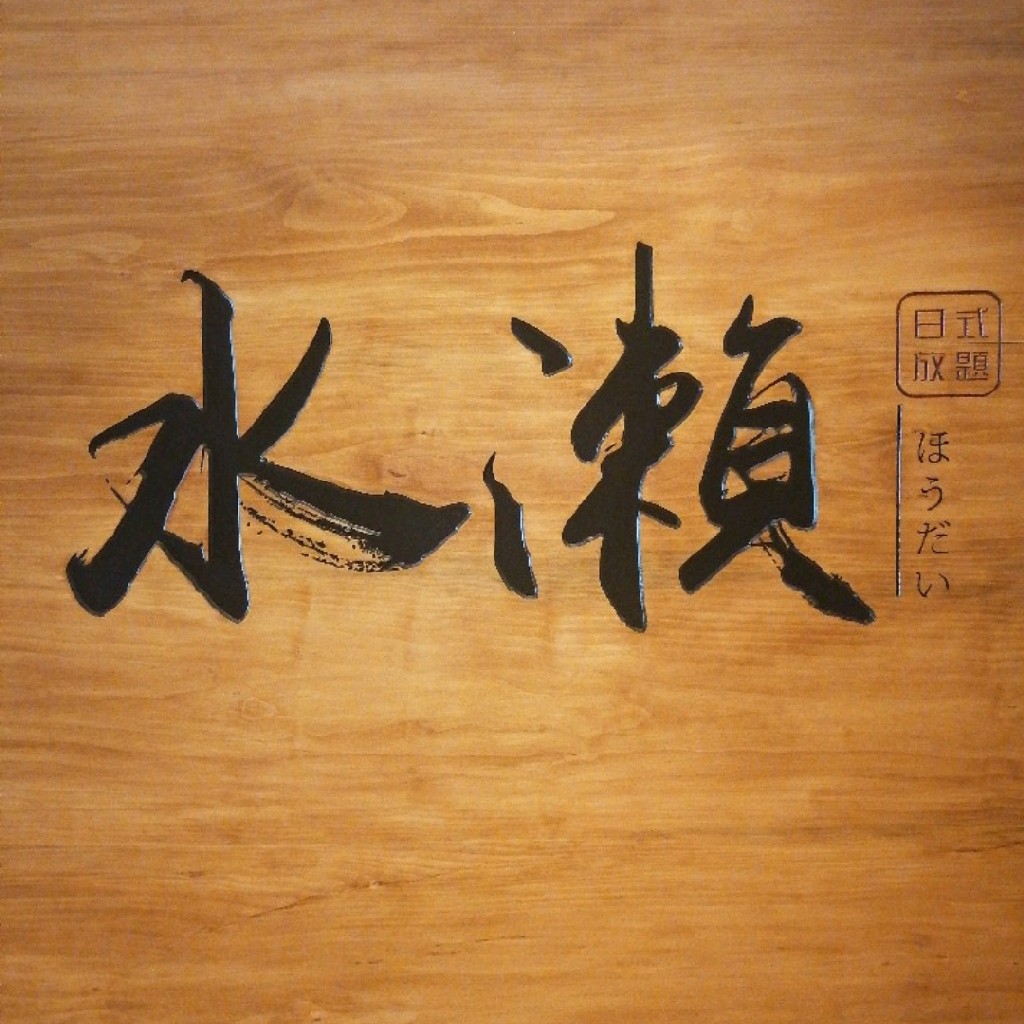 水瀬
日式
放題
ほうだい